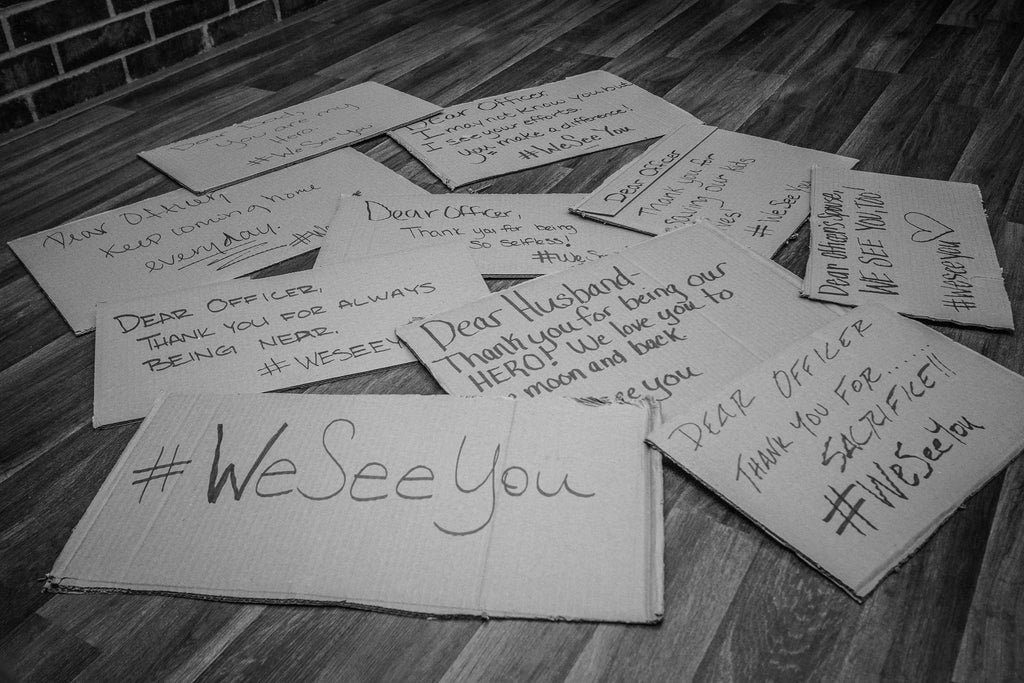 you are my
Hero.
#WeSeeYou
Dear Officer
I may not know you but
I see your efforts.
you make a difference!
#WeSeeYou
Dear Officer
Thank you for
saving our kids
#WeSeeYou
Dear Officer
keep coming home
everyday.
Dear Officer,
Thank you for being
so selfless!
#WeSe
Dear officer's spouse,
WE SEE YOU TOO!
#weseeyou
DEAR OFFICER,
THANK YOU FOR ALWAYS
BEING NEAR.
#WESEEY
Dear Husband-
Thank you for being our
HERO! We love you to
moon and back
See you
DEAR OFFICER
THANK YOU FOR.....
SACRIFICE!!
#WeSeeYou
#WeSeeYou